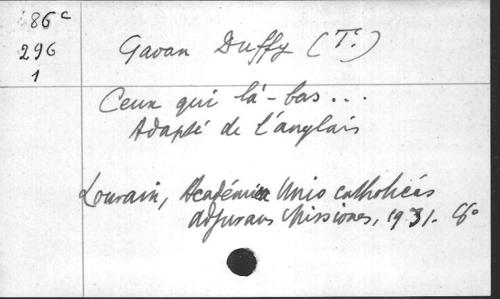 86 c
296
1
Gavan Duffy (T.)
Ceux qui là-bas...
Adapté de l'anglais
Louvain, Académica Unio catholicas
adjuvans Missiones, 1931. 8°